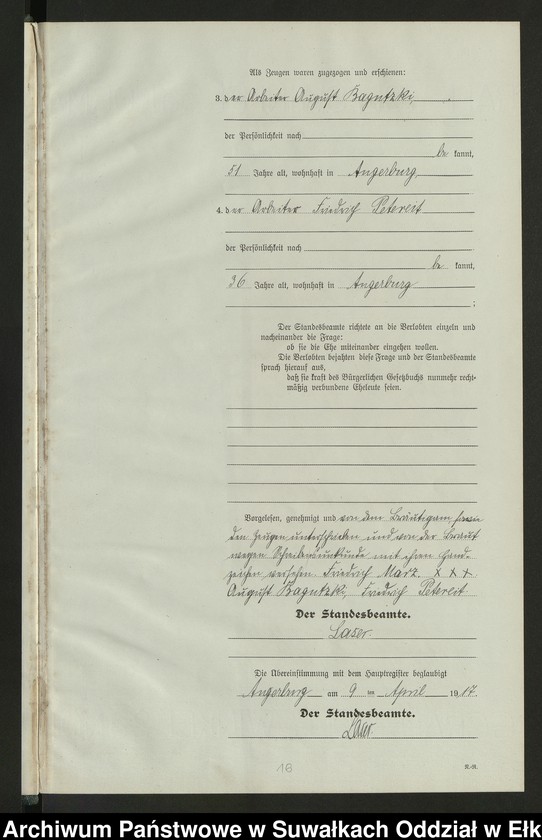 Als Zeugen waren zugezogen und erschienen:
3. der Arbeiter August Bagutzki,
der Persönlichkeit nach
be kannt,
51 Jahre alt, wohnhaft in Angerburg,
4. der Arbeiter Friedrich Petereit
der Persönlichkeit nach
be kannt,
36 Jahre alt, wohnhaft in Angerburg
;
Der Standesbeamte richtete an die Verlobten einzeln und
nacheinander die Frage:
ob sie die Ehe miteinander eingehen wollen.
Die Verlobten bejahten diese Frage und der Standesbeamte
sprach hierauf aus,
daß sie kraft des Bürgerlichen Gesetzbuchs nunmehr recht-
mäßig verbundene Eheleute seien.
Vorgelesen, genehmigt und von dem Bräutigam, sowie
den Zeugen unterschrieben und von der Braut
wegen Schreibensunkunde mit ihren Hand-
zeichen versehen. Friedrich Marz. x x x
August Bagutzki, Friedrich Petereit
Der Standesbeamte.
Laser
Die Übereinstimmung mit dem Hauptregister beglaubigt
Angerburg am 9 ten April 1917.
Der Standesbeamte.
Laser
16
R.-R.
Archiwum Państwowe w Suwałkach Oddział w Ełku